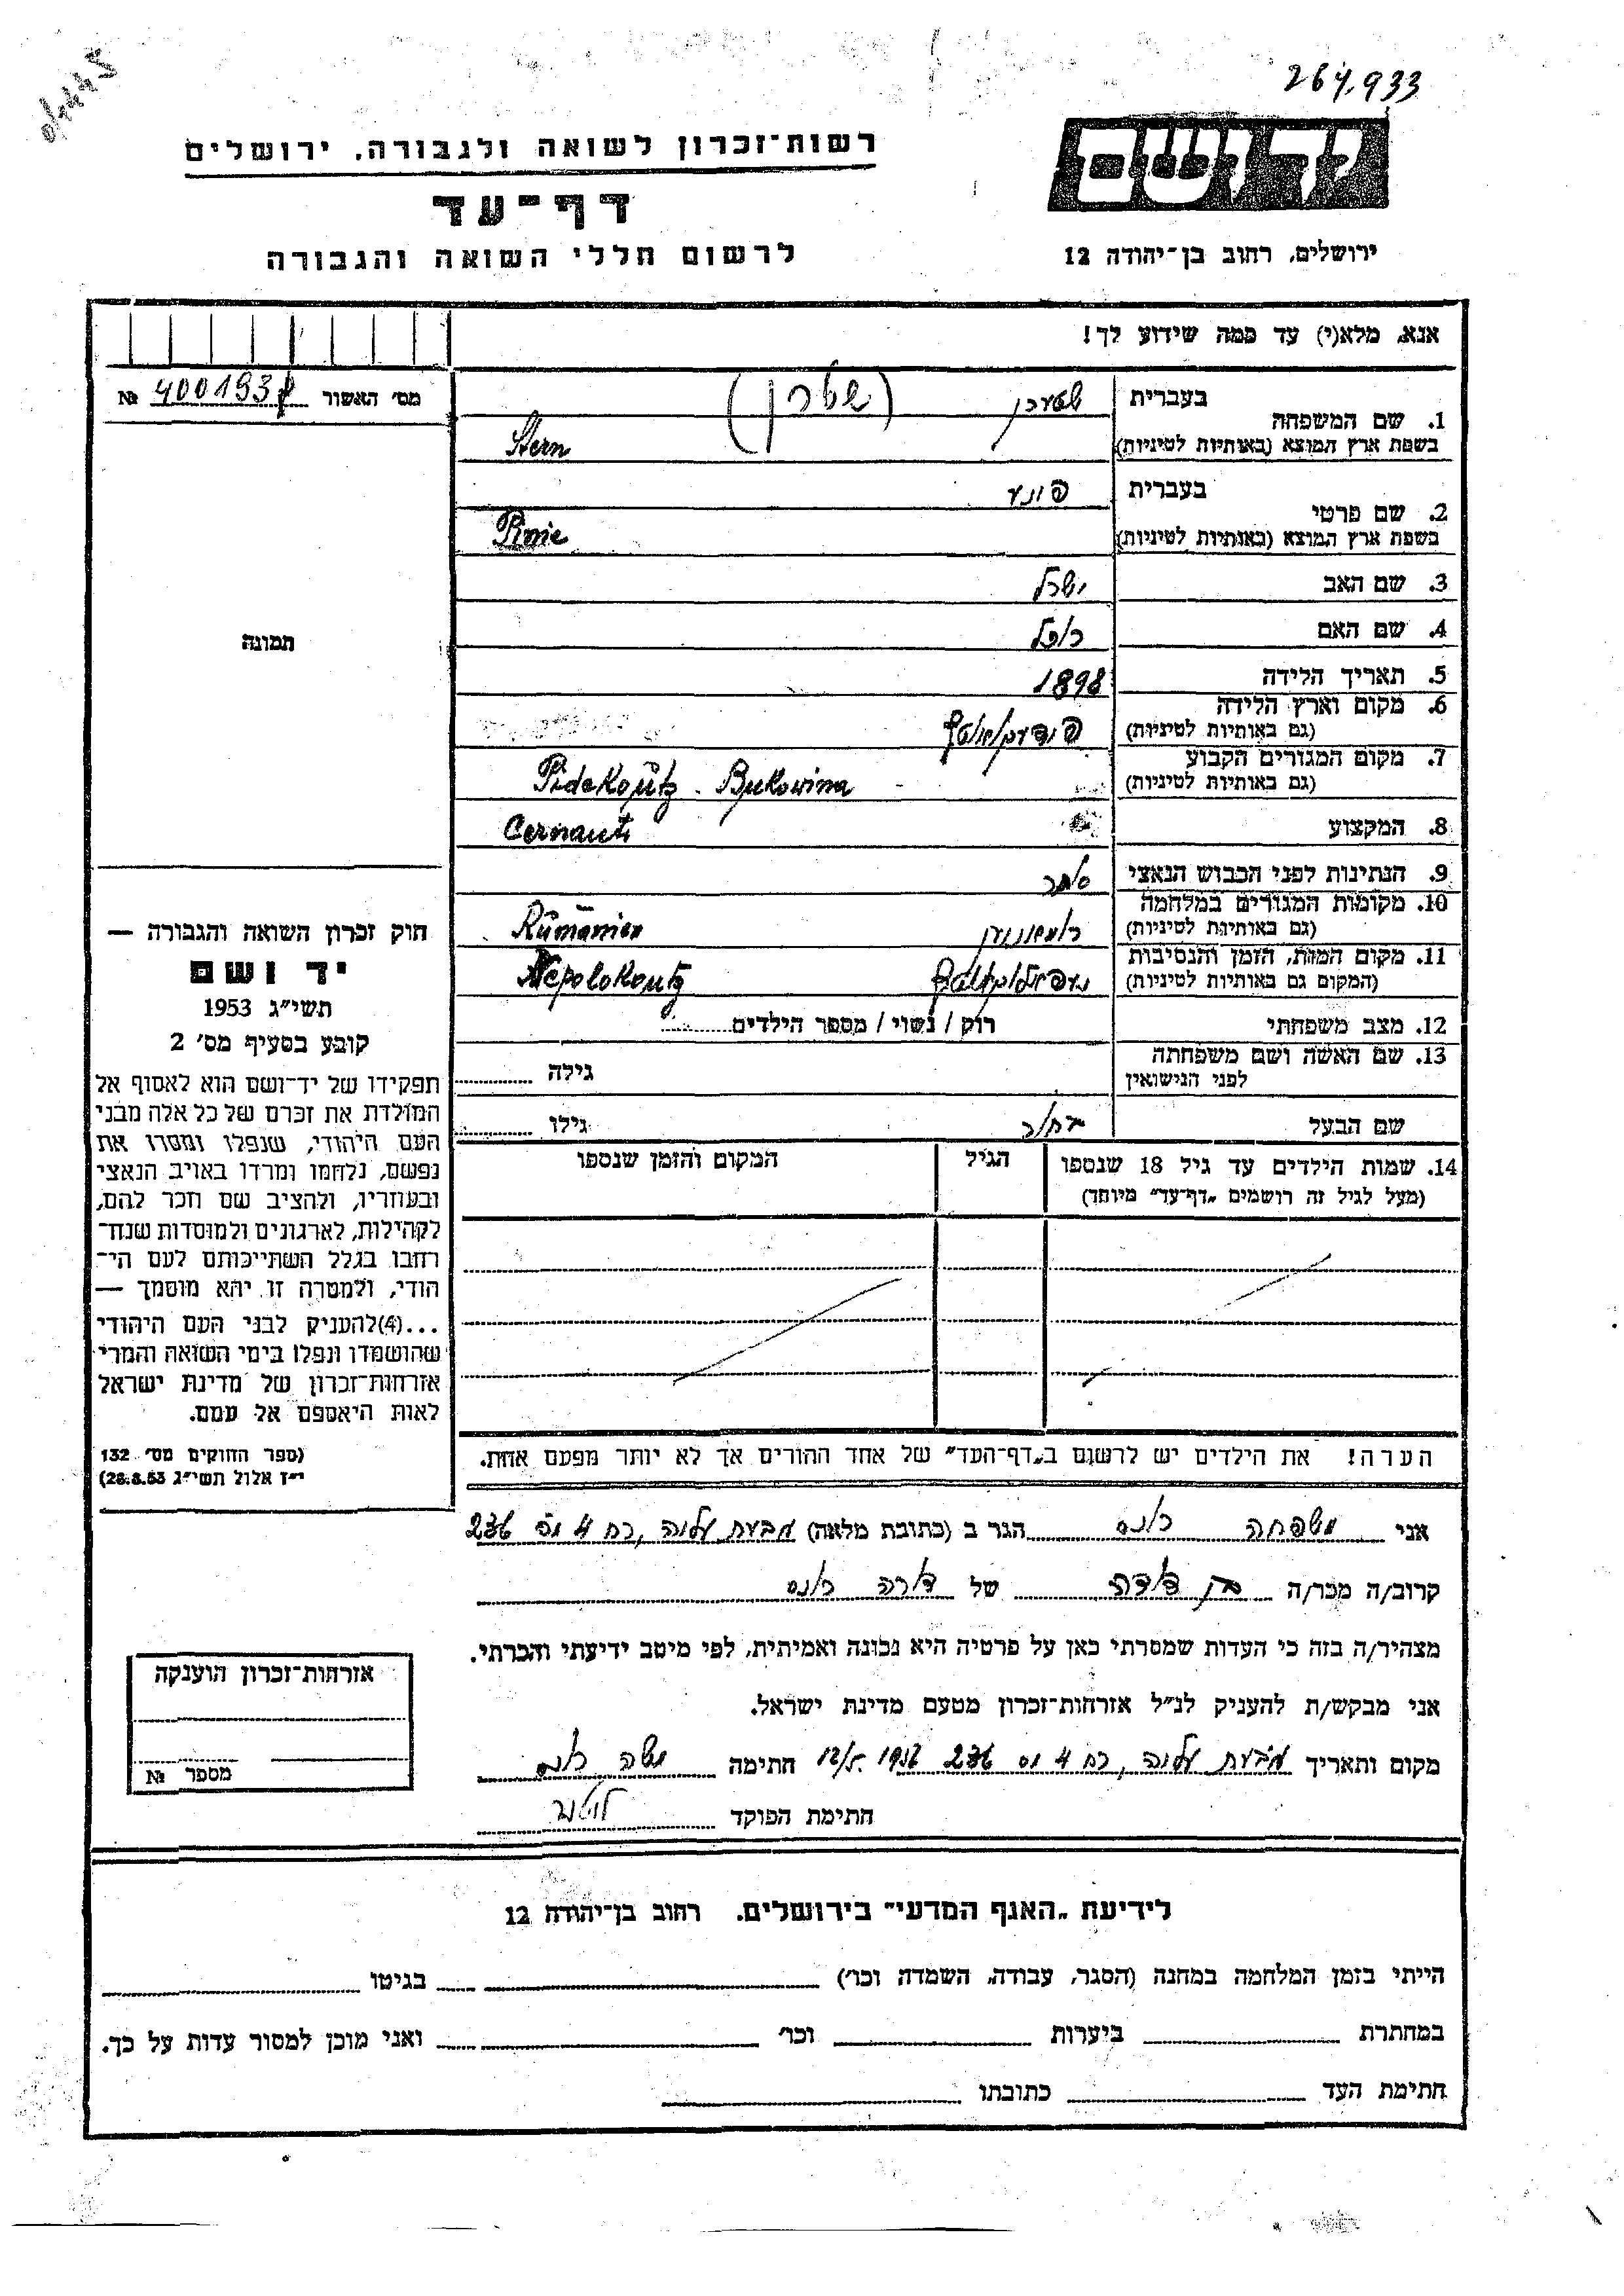 264.933
רשות־זכרון לשואה ולגבורה, ירושלים
יד ושם
דף־עד
לרשום חללי השואה והגבורה
ירושלים, רחוב בן־יהודה 12
אנא, מלא(י) עד כמה שידוע לך!
מס׳ האשור № 4001937
בעברית שטערן (שטרן)
1. שם המשפחה
בשפת ארץ המוצא (באותיות לטיניות) Stern
בעברית
2. שם פרטי
בשפת ארץ המוצא (באותיות לטיניות) Pinie
3. שם האב ישראל
4. שם האם רחל
5. תאריך הלידה 1898
6. מקום וארץ הלידה
(גם באותיות לטיניות)
7. מקום המגורים הקבוע
(גם באותיות לטיניות) Pidekoutz - Bukowina
8. המקצוע Cernauti
9. הנתינות לפני הכבוש הנאצי סוחר
10. מקומות המגורים במלחמה
(גם באותיות לטיניות) Rumänien
11. מקום המות, הזמן והנסיבות
(המקום גם באותיות לטיניות) Nepolokoutz
12. מצב משפחתי רוק / נשוי / מספר הילדים
13. שם האשה ושם משפחתה
לפני הנישואין גילה
שם הבעל גילו
14. שמות הילדים עד גיל 18 שנספו הגיל המקום והזמן שנספו
(מעל לגיל זה רושמים „דף־עד״ מיוחד)
הערה! את הילדים יש לרשום ב„דף־העד״ של אחד ההורים אך לא יותר מפעם אחת.
תמונה
חוק זכרון השואה והגבורה —
יד ושם
תשי״ג 1953
קובע בסעיף מס׳ 2
תפקידו של יד־ושם הוא לאסוף אל
המולדת את זכרם של כל אלה מבני
העם היהודי, שנפלו ומסרו את
נפשם, נלחמו ומרדו באויב הנאצי
ובעוזריו, ולהציב שם וזכר להם,
לקהילות, לארגונים ולמוסדות שנח־
רחבו בגלל השתייכותם לעם הי־
הודי, ולמטרה זו יהא מוסמך —
...(4)להעניק לבני העם היהודי
שהושמדו ונפלו בימי השואה והמרי
אזרחות־זכרון של מדינת ישראל
לאות היאספם אל עמם.
(ספר החוקים מס׳ 132
י״ז אלול תשי״ג 28.8.53)
אני הגר ב (כתובת מלאה) גבעת עליה, רח 4 מס 236
קרוב/ה מכר/ה בן דודה של
מצהיר/ה בזה כי העדות שמסרתי כאן על פרטיה היא נכונה ואמיתית, לפי מיטב ידיעתי והכרתי.
אני מבקש/ת להעניק לנ״ל אזרחות־זכרון מטעם מדינת ישראל.
מקום ותאריך גבעת עליה, רח 4 מס 236 חתימה
חתימת הפוקד
אזרחות־זכרון הוענקה
מספר №
לידיעת „האגף המדעי״ בירושלים. רחוב בן־יהודה 12
הייתי בזמן המלחמה במחנה (הסגר, עבודה, השמדה וכו׳) בגיטו
במחתרת ביערות וכו׳ ואני מוכן למסור עדות על כך.
חתימת העד כתובתו